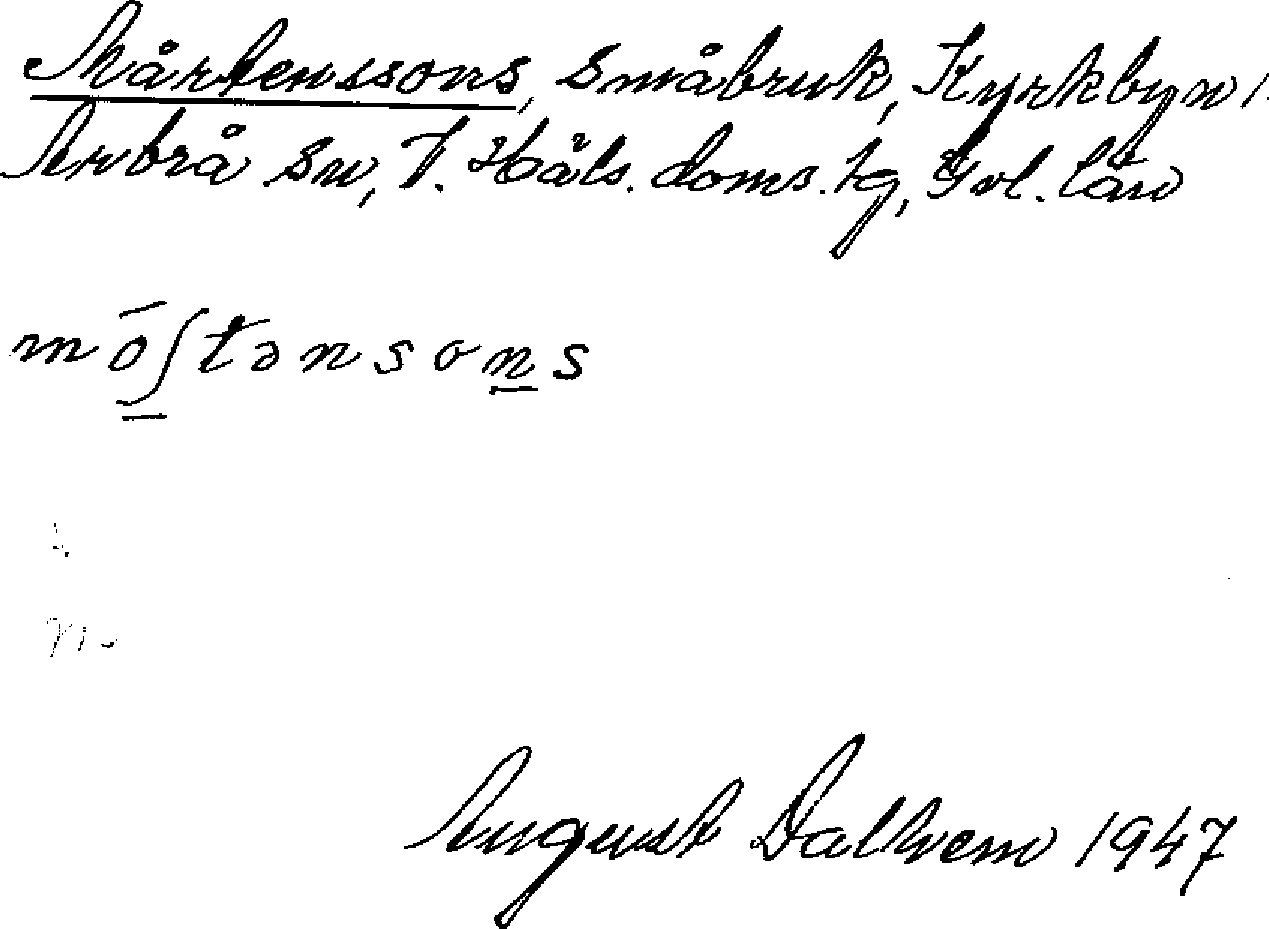 Mårtenssons, småbruk, Kyrkbyn 1.
Arbrå sn, V. Häls. doms. tg, Gvl. län
mōʃtənsons
August Dalhem 1947